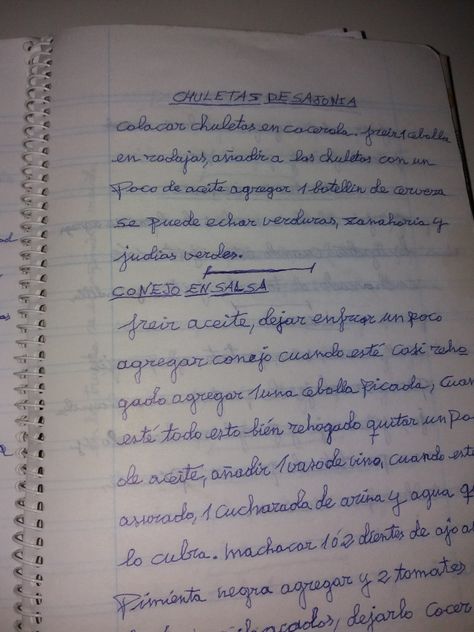 CHULETAS DE SAJONIA
colacar chuletas en cacerola. freir 1 cebolla
en rodajas, añadir a las chuletas con un
Poco de aceite agregar 1 botellin de cerveza
se puede echar verduras, zanahoria y
judias verdes.
CONEJO EN SALSA
freir aceite, dejar enfriar un poco
agregar conejo cuando esté casi reho
gado agregar 1 una cebolla picada, cuan
esté todo esto bién rehogado quitar un po
de aceite, añadir 1 vaso de vino, cuando est
asurado, 1 cucharada de arina y agua q
lo cubra. machacar 1 ó 2 dientes de ajo a
Pimienta negra agregar y 2 tomates
dejarlo cocer